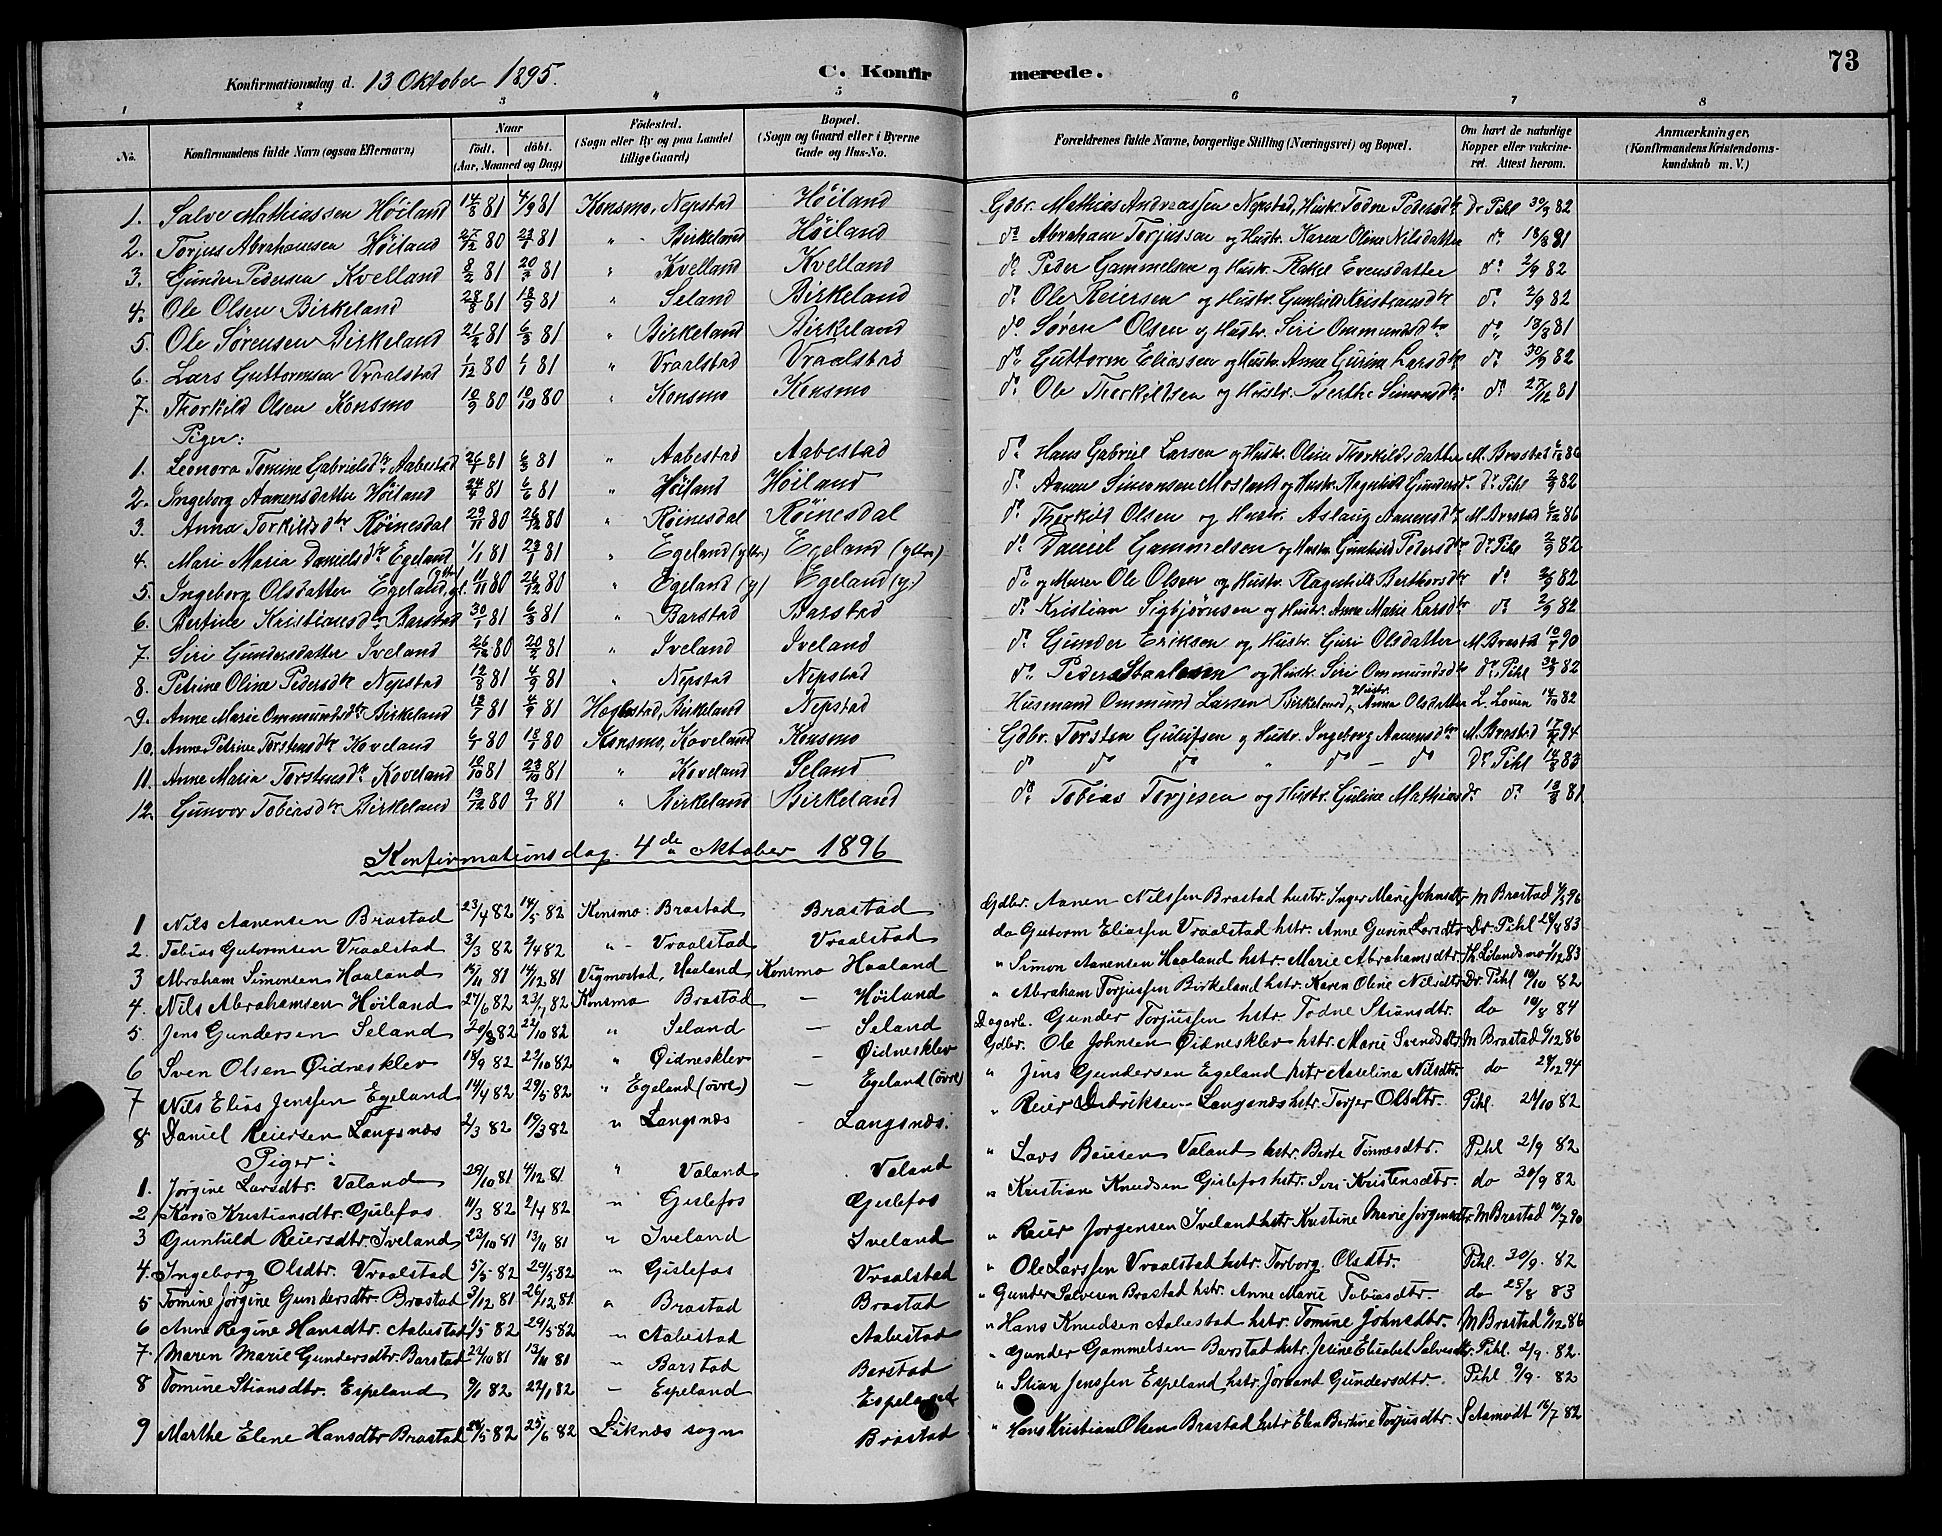 73
Konfirmationsdag d. 13 Oktober 1895. C. Konfirmerede.
1 2 3 4 5 6 7 8
No. Konfirmandens fulde Navn (ogsaa Efternavn) Naar født. døbt. (Aar, Maaned og Dag) Fødested. (Sogn eller By og paa Landet tillige Gaard) Bopæl. (Sogn og Gaard eller i Byerne Gade og Hus-No. Forældrenes fulde Navne, borgerlige Stilling (Næringsvei) og Bopæl. Om havt de naturlige Kopper eller vakcineret. Attest herom. Anmærkninger, (Konfirmandens Kristendomskundskab m. V.)
1. Salve Mathiassen Høiland 14/8 81 4/9 81 Konsmo, Nepstad Høiland Gdbr. Mathias Andreassen Nepstad, Hustr. Todne Pedersdtr Dr Pihl 30/9 82
2. Torjus Abrahamsen Høiland 27/12 80 23/1 81 " - Birkeland Høiland do Abraham Torjussen og Hustr. Karen Oline Nilsdatter do 18/8 81
3. Gunder Pedersen Kvelland 8/2 81 20/3 81 " Kvelland Kvelland do Peder Gammelsen og Hustr. Rakel Evensdatter do 2/9 82
4. Ole Olsen Birkeland 28/8 81 18/9 81 " Seland Birkeland do Ole Reiersen og Hustr. Gunhild Kristiansdtr do 2/9 82
5. Ole Sørensen Birkeland 21/2 81 6/3 81 " Birkeland Birkeland do Søren Olsen og Hustr. Siri Ommundsdtr do 13/8 81
6. Lars Guttormsen Vraalstad 1/12 80 1/1 81 " Vraalstad Vraalstad do Guttorm Eliassen og Hustr. Anne Gurine Larsdtr do 30/9 82
7. Thorkild Olsen Konsmo 10/9 80 10/10 80 " Konsmo Konsmo do Ole Thorkildsen og Hustr. Berthe Simonsdtr do 27/12 81
Piger:
1. Leonora Tomine Gabrielsdtr Aabestad 26/1 81 6/3 81 " Aabestad Aabestad do Hans Gabriel Larsen og Hustr. Oline Thorkildsdatter M. Brastad 6/12 86
2. Ingeborg Aanensdatter Høiland 24/4 81 6/6 81 " Høiland Høiland do Aanen Simonsen Mosland og Hustr. Ragnhild Gundersd. Dr Pihl 2/9 82
3. Anna Torkildsdtr Røinesdal 29/11 80 26/12 80 " Røinesdal Røinesdal do Thorkild Olsen og Hustr. Aslaug Aanensdtr M. Brastad 6/12 86
4. Mari Maria Danielsdtr Egeland 1/1 81 23/1 81 " Egeland (ytr.) Egeland (ytre) do Daniel Gammelsen og Hustr. Gunhild Pedersdtr Dr Pihl 2/9 82
5. Ingeborg Olsdatter Egeland, 11/11 80 26/12 80 " Egeland (y) Egeland (y.) do og Murer Ole Olsen og Hustr. Ragnhild Berthorsdtr do 2/9 82
6. Bertine Kristiansdtr Barstad 30/1 81 6/3 81 " Barstad Barstad do Kristian Sigbjørnsen og Hustr. Anne Marie Larsdtr do 2/9 82
7. Siri Gundersdatter Iveland 26/12 80 20/2 81 " Iveland Iveland do Gunder Eriksen og Hustr. Guri Olsdatter M. Brastad 10/7 90
8. Petrine Oline Pedersdtr Nepstad 12/8 81 4/9 81 " Nepstad Nepstad do Peder Staalesen og Hustr. Siri Ommundsdtr Dr Pihl 30/9 82
9. Anne Marie Ommundsdtr Birkeland 13/7 81 4/9 81 Hægbostad, Birkeland Nepstad Husmand Ommund Larsen Birkeland, Hustr. Anna Olsdatter L. Louen 14/10 82
10. Anne Petrine Torstensdtr Koveland 6/1 80 18/1 80 Konsmo, Koveland Konsmo Gdbr. Torsten Gulufsen og Hustr. Ingeborg Aanensdtr M. Brastad 17/9 94
11. Anne Maria Torstensdtr Koveland 10/10 81 23/10 81 " Koveland Seland do do do " do - do Dr Pihl 14/8 83
12. Gunvor Tobiasdtr Birkeland 13/12 80 9/1 81 " Birkeland Birkeland do Tobias Torjesen og Hustr. Guline Mathiasd. do 13/8 81
Konfirmationsdag 4de Oktober 1896
1 Nils Aanensen Brastad 23/4 82 14/5 82 Konsmo: Brastad Brastad Gdbr. Aanen Nilssen Brastad hustr. Inger Marie Johnsdtr M Brastad 1/5 96
2 Tobias Gutormsen Vraalstad 3/3 82 2/4 82 " - Vraalstad Vraalstad do Gutorm Eliassen Vraalstad hstr. Anne Gurine Larsdtr Dr Pihl 28/8 83
3 Abraham Simonsen Haaland 14/11 81 14/12 81 Vigmostad, Haaland Konsmo Haaland " Simon Aanensen Haaland hstr. Marie Abrahamsdtr. Th. Lølandsmo 1/12 83
4. Nils Abrahamsen Høiland 27/6 82 23/7 82 Konsmo Brastad - Høiland " Abraham Torjussen Birkeland hstr. Karen Oline Nilsdtr Dr. Pihl 10/10 82
5 Jens Gundersen Seland 20/8 82 22/10 82 " Seland - Seland Dagarb. Gunder Torjussen hstr. Todne Stiansdtr. do 19/8 84
6 Sven Olsen Øidnesklev 18/9 82 22/10 82 " Øidnesklev - Øidnesklev Gdbr. Ole Johnsen Øidnesklev hstr. Marie Svendsdtr. M Brastad 6/12 86
7 Nils Elias Jenssen Egeland 14/4 82 29/5 82 " Egeland (övre) - Egeland (övre) " Jens Gundersen Egeland hstr Aaselina Nilsdtr. do 28/12 94
8 Daniel Reiersen Langsnæs 2/3 82 19/3 82 " Langsnæs - Langsnæs. " Reier Didriksen Langsnæs hstr. Torjer Olsdtr. Pihl. 21/10 82
Piger:
1. Jørgine Larsdtr. Valand 29/10 81 4/12 81 " Valand Valand " Lars Boiesen Valand hstr. Berte Tönnesdtr. Pihl 2/9 82
2 Kari Kristiansdtr. Gislefos 11/3 82 2/4 82 " Gislefos Gislefos " Kristian Knudsen Gislefos hstr. Siri Kristensdtr. do 30/9 82
3 Gunhild Reiersdtr. Iveland 23/10 81 13/11 81 " Iveland Iveland " Reier Jorgensen Iveland hstr Kristine Marie Jørgensdtr. M Brastad 10/7 90
4. Ingeborg Olsdtr. Vraalstad 5/5 82 29/5 82 " Gislefos Vraalstad " Ole Larssen Vraalstad hstr. Torborg Olsdtr. Pihl. 30/9. 82
5 Tomine Jørgine Gundersdtr. Brastad 3/12 81 26/12 81 " Brastad Brastad " Gunder Salvesen Brastad hstr. Anne Marie Tobiasdtr. do 28/8 83
6 Anne Regine Hansdtr. Aabestad 1/5 82 29/5 82 " Aabestad Aabestad " Hans Knudsen Aabestad hstr. Tomine Johnsdtr. M Brastad 6/12 86
7. Maren Marie Gundersdtr. Barstad 22/10 81 13/11 81 " Barstad Barstad " Gunder Gammelsen Barstad hstr. Jesine Elisabet Salvesdtr. Pihl. 2/9. 82.
8 Tomine Stiansdtr. Espeland 9/1 82 22/1 82 - Espeland Espeland " Stian Jenssen Espeland hstr. Jørand Gundersdtr. Pihl 9/9. 82
9 Marthe Elene Hansdtr Brastad 28/5 82 25/6 82 Liknæs sogn Brastad " Hans Kristian Olsen Brastad hstr Elen Bertine Torjusdtr. Setsmodt 18/7 82